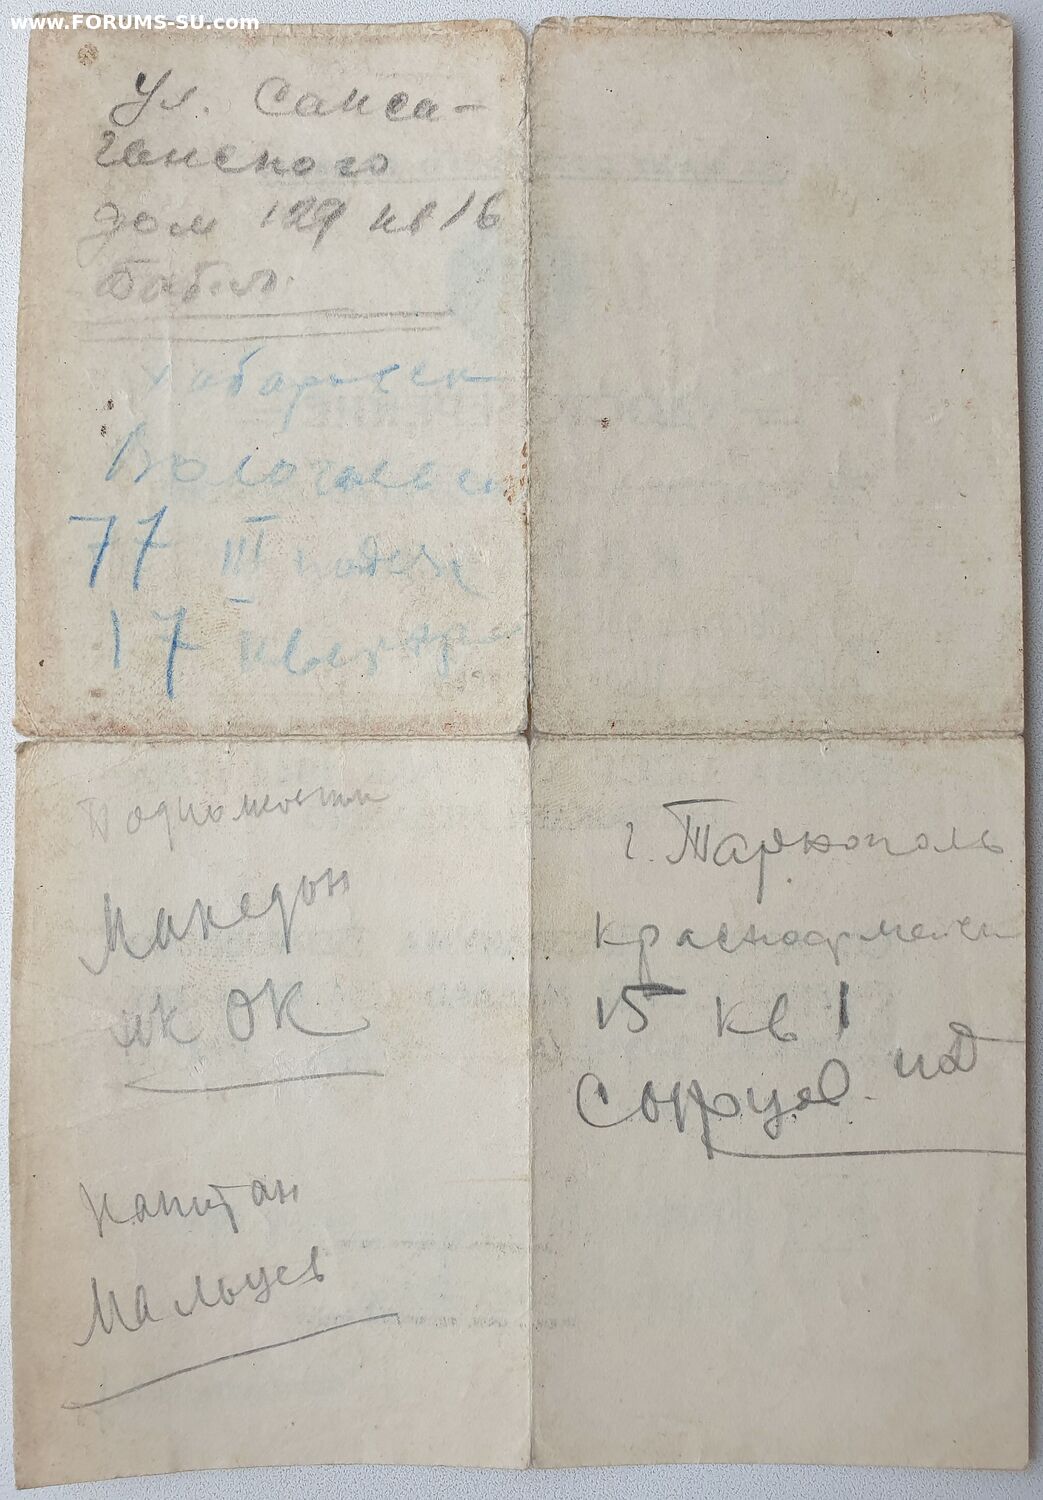 www.FORUMS-SU.com
Ул. Сакса-
ганского
дом 129 кв 16
Хабаровск
Волочаевск
77 III подъезд
17 квартира
Македон
ОК
Капитан
Мальцев
г. Тарнополь
Красноармейск
15 кв 1